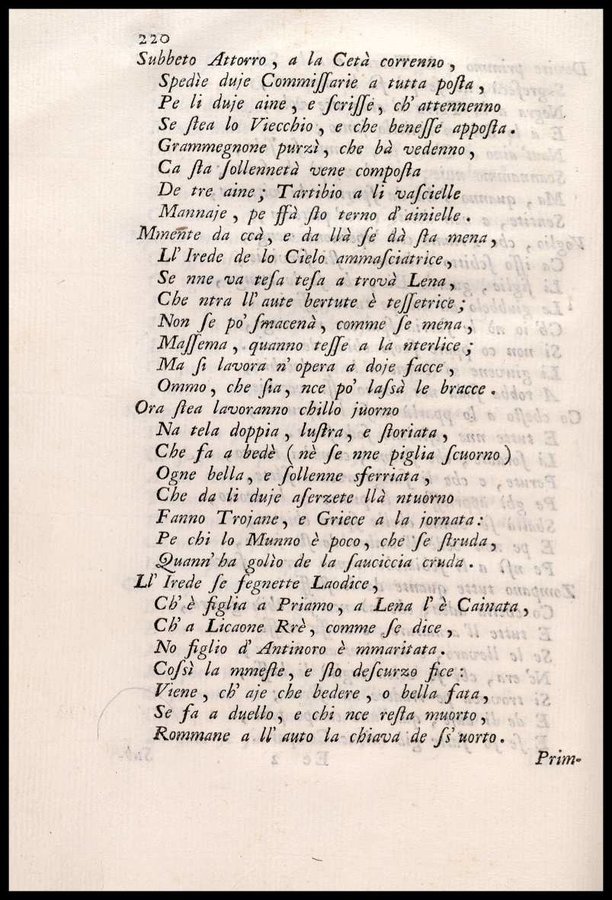 220
Subbeto Attorro, a la Cetà correnno,
Spedìe duje Commiſſarie a tutta poſta,
Pe li duje aine, e ſcriſſe, ch' attennenno
Se ſtea lo Viecchio, e che beneſſe appoſta.
Grammegnone purzì, che bà vedenno,
Ca ſta ſollennetà vene compoſta
De tre aine; Tartibio a li vaſcielle
Mannaje, pe ffà ſto terno d' ainielle.
Mmente da ccà, e da llà ſe dà ſta mena,
Ll' Irede de lo Cielo ammaſciatrice,
Se nne va teſa teſa a trovà Lena,
Che ntra ll' aute bertute è teſſetrice;
Non ſe po' ſmacenà, comme ſe mena,
Maſſema, quanno teſſe a la nterlice;
Ma ſi lavora n' opera a doje facce,
Ommo, che ſia, nce po' laſſà le bracce.
Ora ſtea lavoranno chillo juorno
Na tela doppia, luſtra, e ſtoriata,
Che fa a bedè (nè ſe nne piglia ſcuorno)
Ogne bella, e ſollenne sferriata,
Che da li duje aſerzete llà ntuorno
Fanno Trojane, e Griece a la jornata:
Pe chi lo Munno è poco, che ſe ſtruda,
Quann' ha golìo de la ſauciccia cruda.
Ll' Irede ſe fegnette Laodice,
Ch' è figlia a Priamo, a Lena l' è Cainata,
Ch' a Licaone Rrè, comme ſe dice,
No figlio d' Antinoro è mmaritata.
Coſſì la mmeſte, e ſto deſcurzo fice:
Viene, ch' aje che bedere, o bella fata,
Se fa a duello, e chi nce reſta muorto,
Rommane a ll' auto la chiava de ſs' uorto.
Prim-